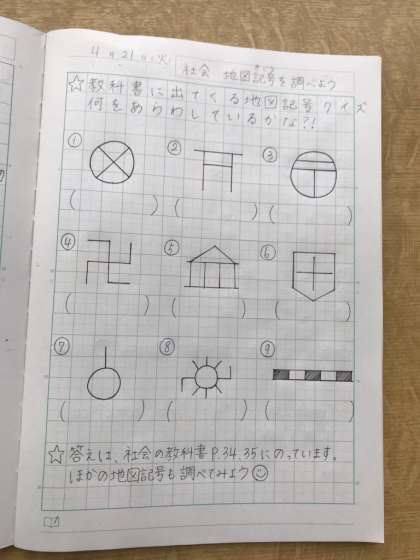 4月21日(火)
きごう
社会 地図記号を調べよう
☆教科書に出てくる地図記号クイズ
何をあらわしているかな?!
① ② ③
( ) ( ) ( )
④ ⑤ ⑥
( ) ( ) ( )
⑦ ⑧ ⑨
( ) ( ) ( )
☆答えは、社会の教科書P.34、35にのっています。
ほかの地図記号も調べてみよう